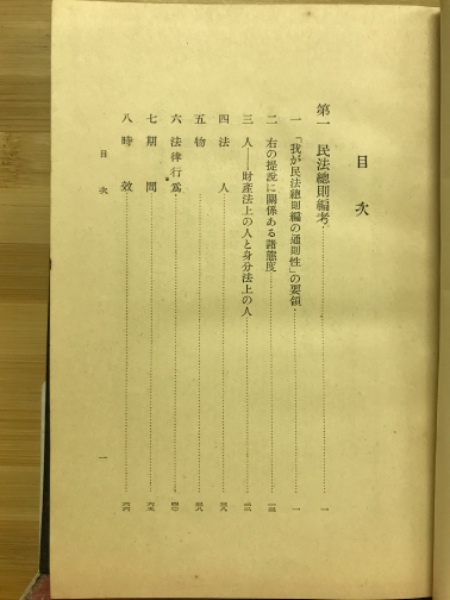 目次
第一 民法總則編考 一
一 「我が民法總則編の通則性」の要領 一
二 右の提說に關係ある諸態度
三 人——財產法上の人と身分法上の人
四 法人
五 物
六 法律行爲 四〇
七 期間 六五
八 時效 六六
目次 一